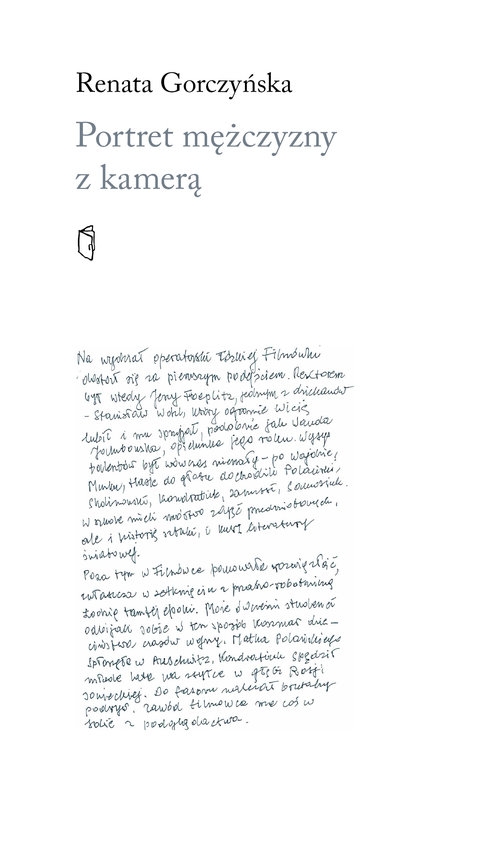 Renata Gorczyńska
Portret mężczyzny
z kamerą
Na wydział operatorski łódzkiej Filmówki
dostał się za pierwszym podejściem. Rektorem
był wtedy Jerzy Toeplitz, jednym z dziekanów
– Stanisław Wohl, który ogromnie Wicię
lubił i mu sprzyjał, podobnie jak Wanda
Jakubowska, opiekunka jego roku. Wysyp
talentów był wówczas niemały – po Wajdzie,
Munku, Hasie do głosu dochodzili Polański,
Skolimowski, Kondratiuk, Zanussi,
W szkole mieli mnóstwo zajęć przedmiotowych,
ale i historię sztuki, i kurs literatury
światowej.
Poza tym w Filmówce panowała
zwłaszcza w zetknięciu z prasko-robotniczą
Łodzią tamtej epoki. Może ówcześni studenci
odbijali sobie w ten sposób koszmar dzie–
ciństwa czasów wojny. Matka Polańskiego
spłonęła w Auschwitz, Kondratiuk spędził
młode lata na zsyłce w głębi Rosji
sowieckiej. Do tego należał brutalny
podryw. Zawód filmowca ma coś w
sobie z podglądactwa.